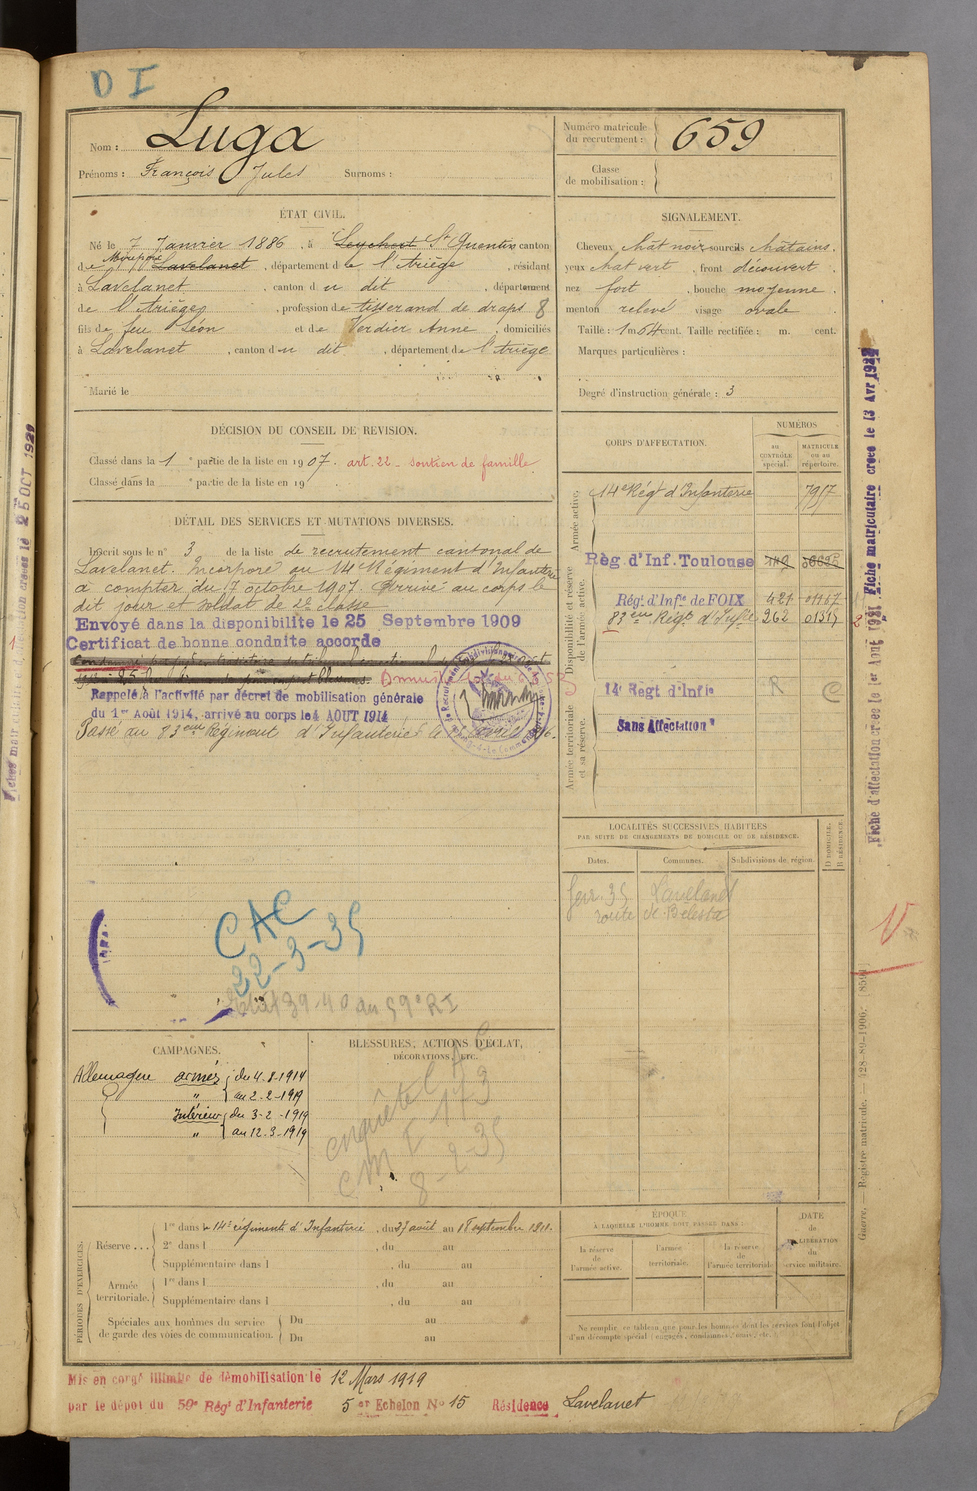 D I
Nom : Luga
Prénoms : François Jules Surnoms :
Numéro matricule du recrutement : 659
Classe de mobilisation :
ÉTAT CIVIL.
Né le 7 Janvier 1886, à Leychert St Quentin canton
de Mirepoix Lavelanet, département de l'Ariège, résidant
à Lavelanet, canton du dit, département
de l'Ariège, profession de tisserand de draps 8
fils de feu Léon et de Verdier Anne, domiciliés
à Lavelanet, canton du dit, département de l'Ariège
Marié le
SIGNALEMENT.
Cheveux chat noir sourcils châtains.
yeux chat vert, front découvert
nez fort, bouche moyenne.
menton relevé visage ovale.
Taille : 1m 64 cent. Taille rectifiée : m. cent.
Marques particulières :
Degré d'instruction générale : 3
DÉCISION DU CONSEIL DE REVISION.
Classé dans la 1e partie de la liste en 1907. art. 22 - soutien de famille.
Classé dans la e partie de la liste en 19
DÉTAIL DES SERVICES ET MUTATIONS DIVERSES.
Inscrit sous le n° 3 de la liste de recrutement cantonal de
Lavelanet. Incorporé au 14e Régiment d'Infanterie
à compter du 7 octobre 1907. Arrivé au corps le
dit jour et soldat de 2e classe
Envoyé dans la disponibilité le 25 Septembre 1909
Certificat de bonne conduite accordé
Rappelé à l'activité par décret de mobilisation générale
du 1er Août 1914, arrivé au corps le 4 AOUT 1914
Passé au 83eme Régiment d'Infanterie
CORPS D'AFFECTATION.
NUMÉROS
au CONTRÔLE spécial.
MATRICULE ou au répertoire.
Armée active.
14e Régt d'Infanterie 7957
Disponibilité et réserve de l'armée active.
Règ d'Inf. Toulouse 749
Régt d'Infie de FOIX 421 01167
83eme Régt d'Infie 262 01317
Armée territoriale et sa réserve.
14e Régt d'Infie R
Sans Affectation
LOCALITÉS SUCCESSIVES HABITÉES
PAR SUITE DE CHANGEMENTS DE DOMICILE OU DE RÉSIDENCE.
Dates. Communes. Subdivisions de région.
D DOMICILE. R RÉSIDENCE.
35 Lavelanet
route de Belesta
CAC
22-3-35
39-40 au 59e RI
CAMPAGNES.
Allemagne armées du 4-8-1914
" au 2-2-1919
Intérieur du 3-2-1919
" au 12-3-1919
BLESSURES, ACTIONS D'ÉCLAT,
DÉCORATIONS, ETC.
enquête
8-2-35
PÉRIODES D'EXERCICES.
Réserve . . . 1re dans le 14e régiment d'Infanterie, du 27 août au 18 septembre 1911.
2e dans l , du au
Supplémentaire dans l , du au
Armée territoriale. 1re dans l , du au
Supplémentaire dans l , du au
Spéciales aux hommes du service de garde des voies de communication. Du au
Du au
ÉPOQUE
À LAQUELLE L'HOMME DOIT PASSER DANS :
la réserve de l'armée active.
l'armée territoriale.
la réserve de l'armée territoriale
DATE de LIBÉRATION du service militaire.
Ne remplir ce tableau que pour les hommes dont les services font l'objet
d'un décompte spécial (engagés, condamnés, omis, etc.)
Mis en congé illimité de démobilisation le 12 Mars 1919
par le dépôt du 59e Régt d'Infanterie 5er Echelon No 15 Résidence Lavelanet
Fiche matriculaire créée le 13 Avr
Fiche d'affectation créée le 1er Août
Guerre. — Registre matricule. — 428-89-1906.